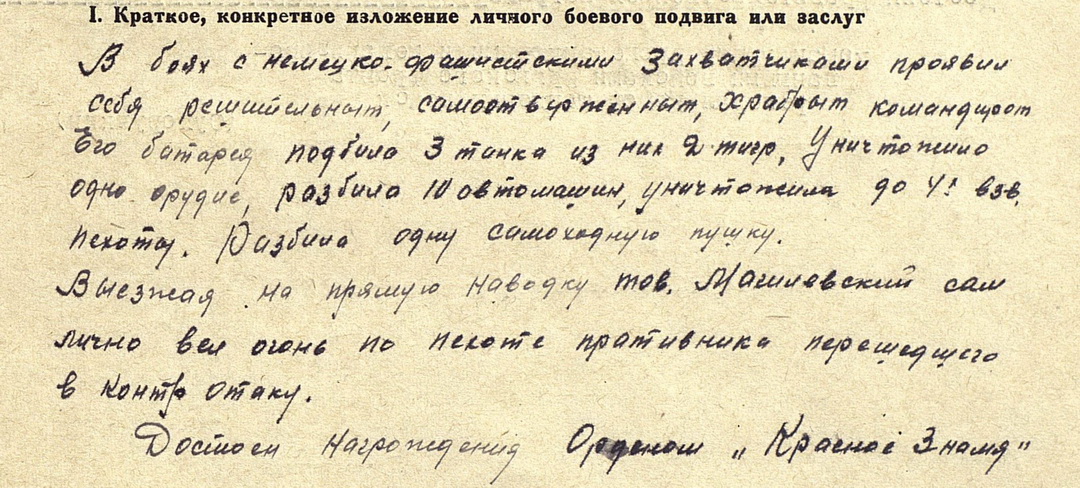 I. Краткое, конкретное изложение личного боевого подвига или заслуг
В боях с немецко-фашистскими захватчиками проявил
себя решительным, самоотверженным, храбрым командиром
Его батарея подбила 3 танка из них 2 тигр, Уничтожило
одно орудие, разбила 10 автомашин, уничтожила до 4: взв.
пехоты. Разбила одну самоходную пушку.
Выезжая на прямую наводку тов. Магилевский сам
лично вел огонь по пехоте пративника перешедшего
в контр отаку.
Достоен награждения Орденом „Красное Знамя"